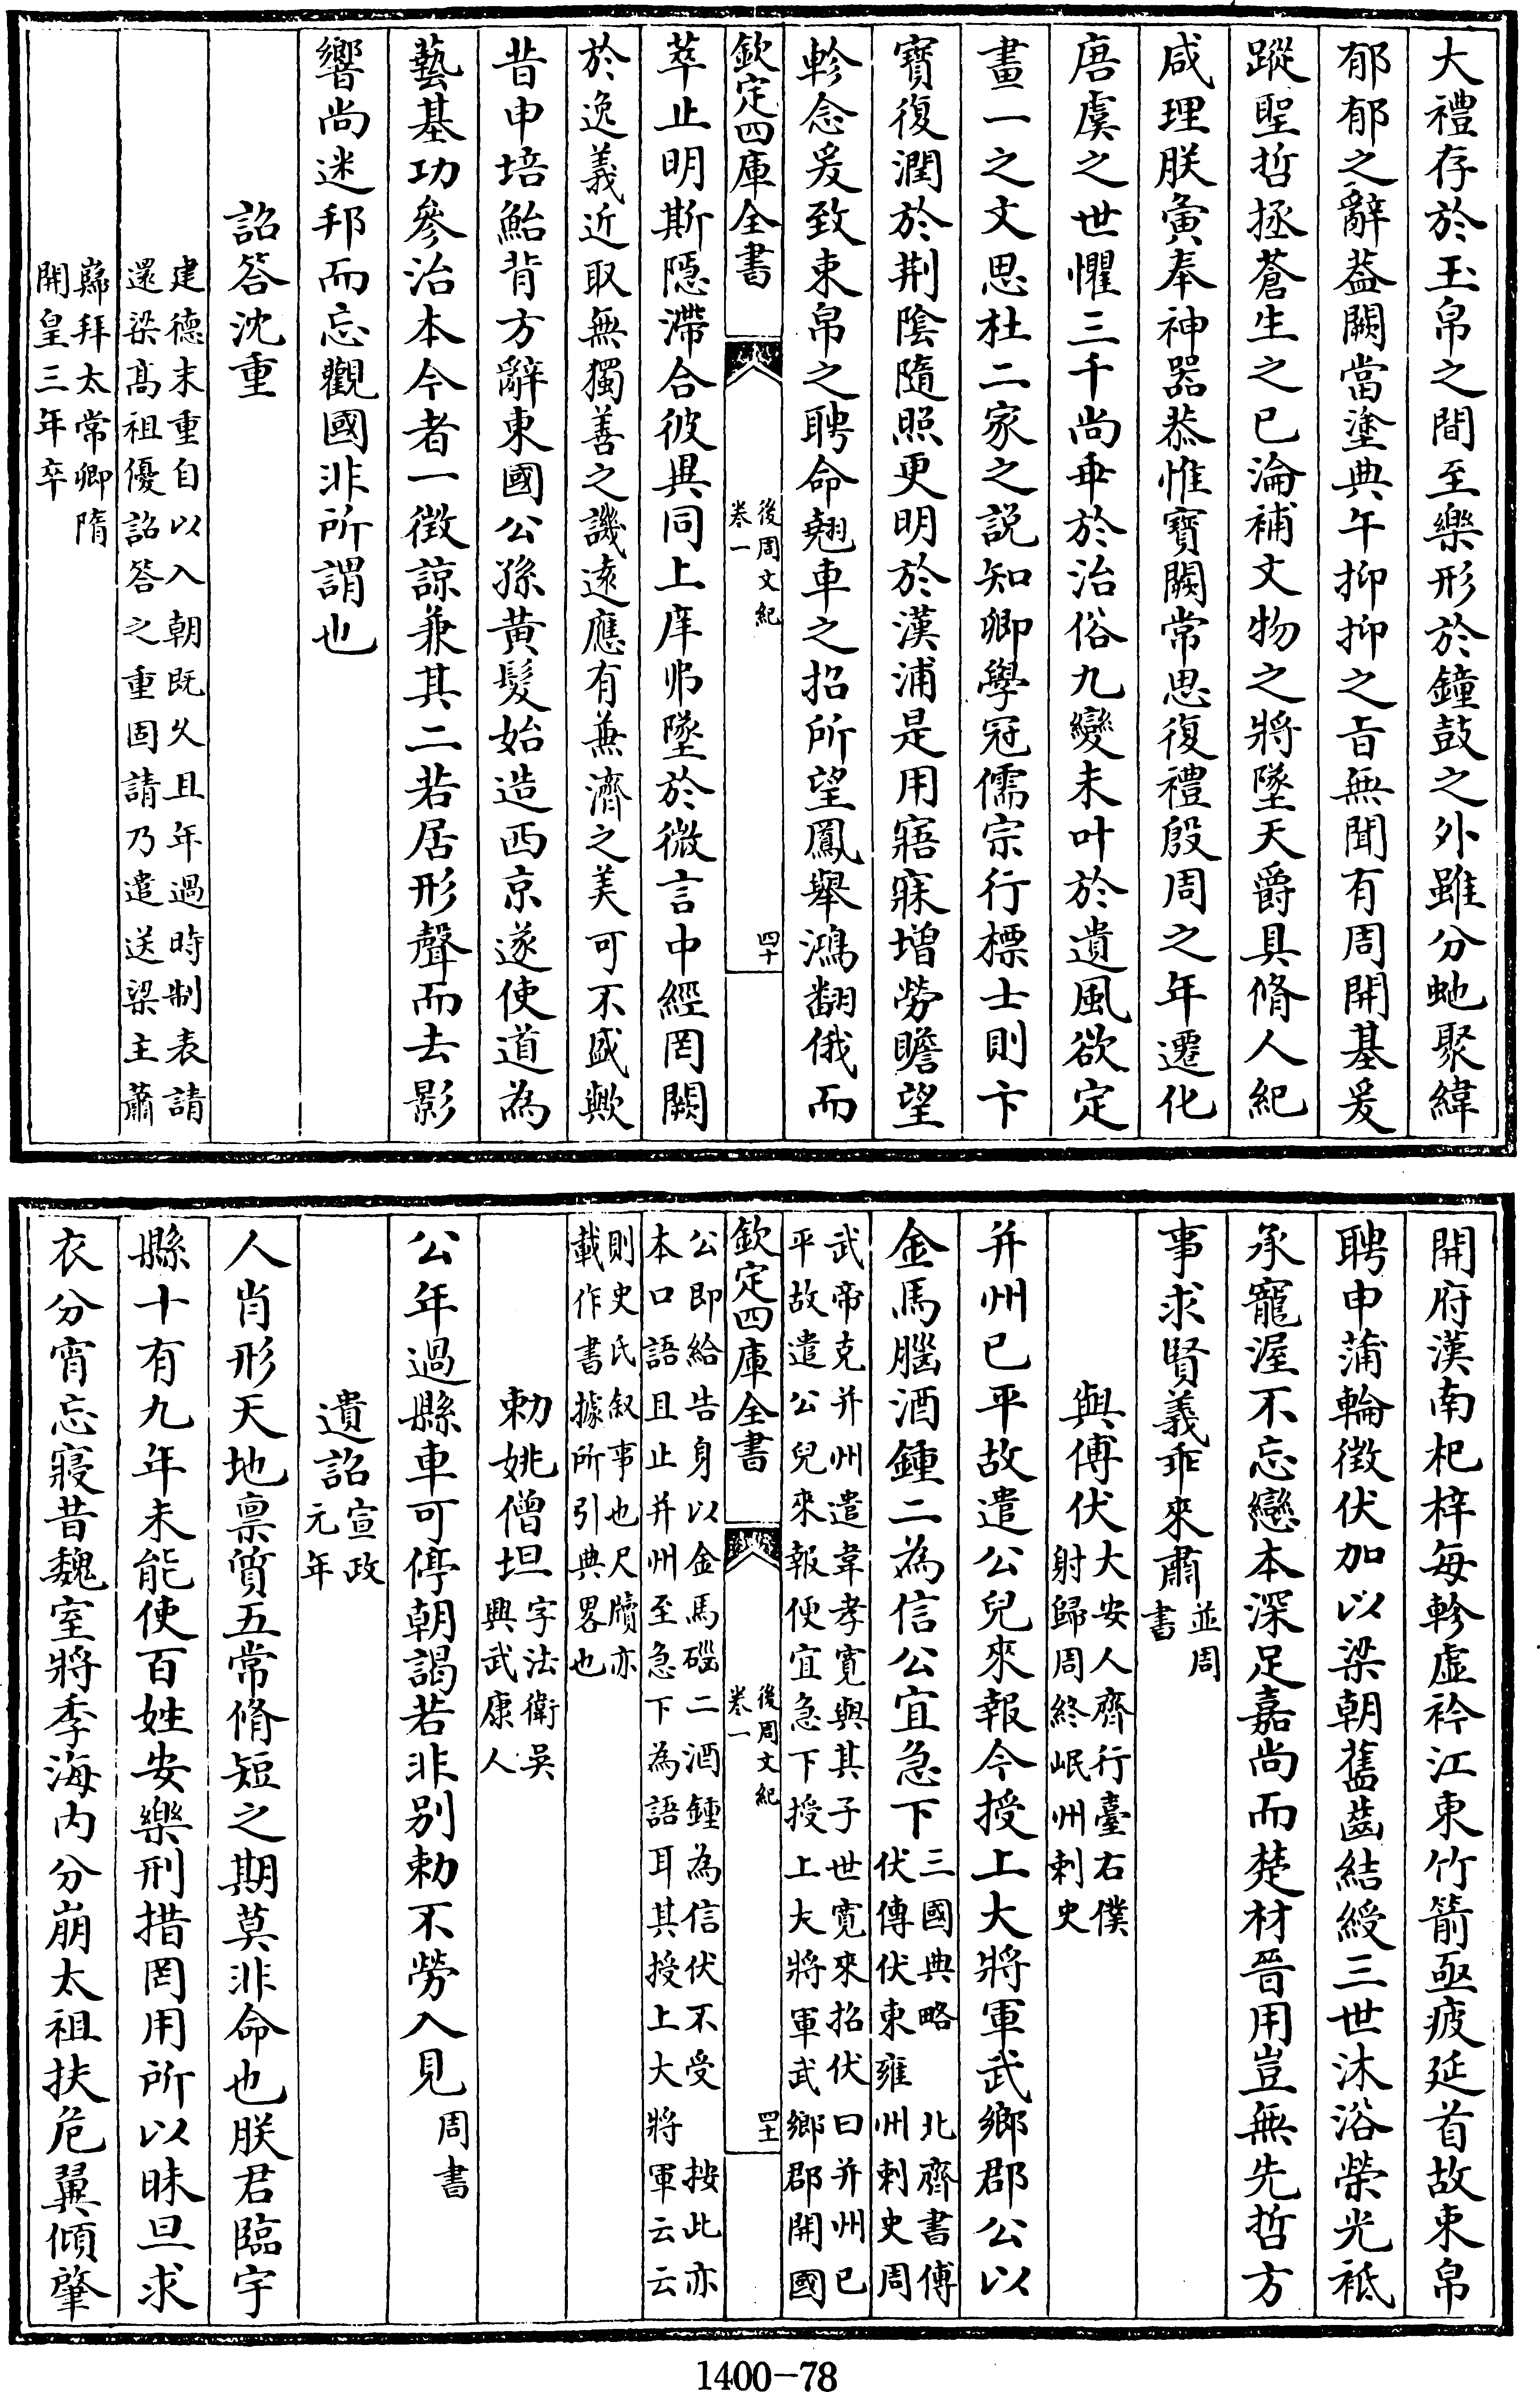 大禮存於玉帛之間至樂形於鐘鼓之外雖分虵聚緯
郁郁之辭葢闕當塗典午抑抑之㫖無聞有周開基爰
蹤聖哲拯蒼生之已淪補文物之將墜天爵具脩人紀
咸理朕寅奉神器恭惟寶闕常思復禮殷周之年遷化
唐虞之世懼三千尚乖於治俗九變未叶於遺風欲定
畫一之文思杜二家之説知卿學冠儒宗行標士則卞
寶復潤於荆陰隨照更明於漢浦是用寤寐增勞瞻望
軫念爰致束帛之聘命翹車之招所望鳳舉鴻翻俄而
欽定四庫全書
後周文紀
卷一
四十
萃止明斯隠滯合彼異同上庠弗墜於微言中經罔闕
於逸義近取無獨善之譏逺應有兼濟之美可不盛歟
昔申培鮐背方辭東國公孫黄髮始造西京遂使道為
藝基功參治本今者一徴諒兼其二若居形聲而去影
響尚迷邦而忘觀國非所謂也
詔答沈重
建德末重自以入朝既久且年過時制表請
還梁髙祖優詔答之重固請乃遣送梁主蕭
巋拜太常卿隋
開皇三年卒
開府漢南杞梓每軫虚衿江東竹箭亟疲延首故束帛
聘申蒲輪徴伏加以梁朝舊齒結綬三世沐浴榮光祗
承寵渥不忘戀本深足嘉尚而楚材晉用豈無先哲方
事求賢義乖來肅
並周
書
與傅伏
大安人齊行臺右僕
射歸周終岷州刺史
并州已平故遣公兒來報今授上大將軍武鄉郡公以
金馬腦酒鍾二為信公宜急下
三國典略　北齊書傅
伏傳伏東雍州刺史周
武帝克并州遣韋孝寛與其子世寛來招伏曰并州已
平故遣公兒來報便宜急下授上大將軍武鄉郡開國
欽定四庫全書
後周文紀
卷一
四十一
公即給告身以金馬碯二酒鍾為信伏不受　按此亦
本口語且止并州至急下為語耳其授上大將軍云云
則史氏叙事也尺牘亦
載作書據所引典畧也
勅姚僧坦
字法衛吳
興武康人
公年過縣車可停朝謁若非别勅不勞入見
周書
遺詔
宣政
元年
人肖形天地禀質五常脩短之期莫非命也朕君臨宇
縣十有九年未能使百姓安樂刑措罔用所以昧旦求
衣分宵忘寢昔魏室將季海内分崩太祖扶危翼傾肇
1400-78